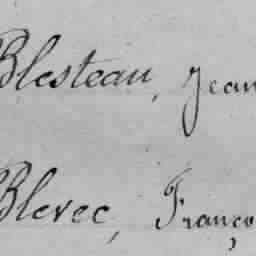 Blesteau, Jean
Blevec, Franço